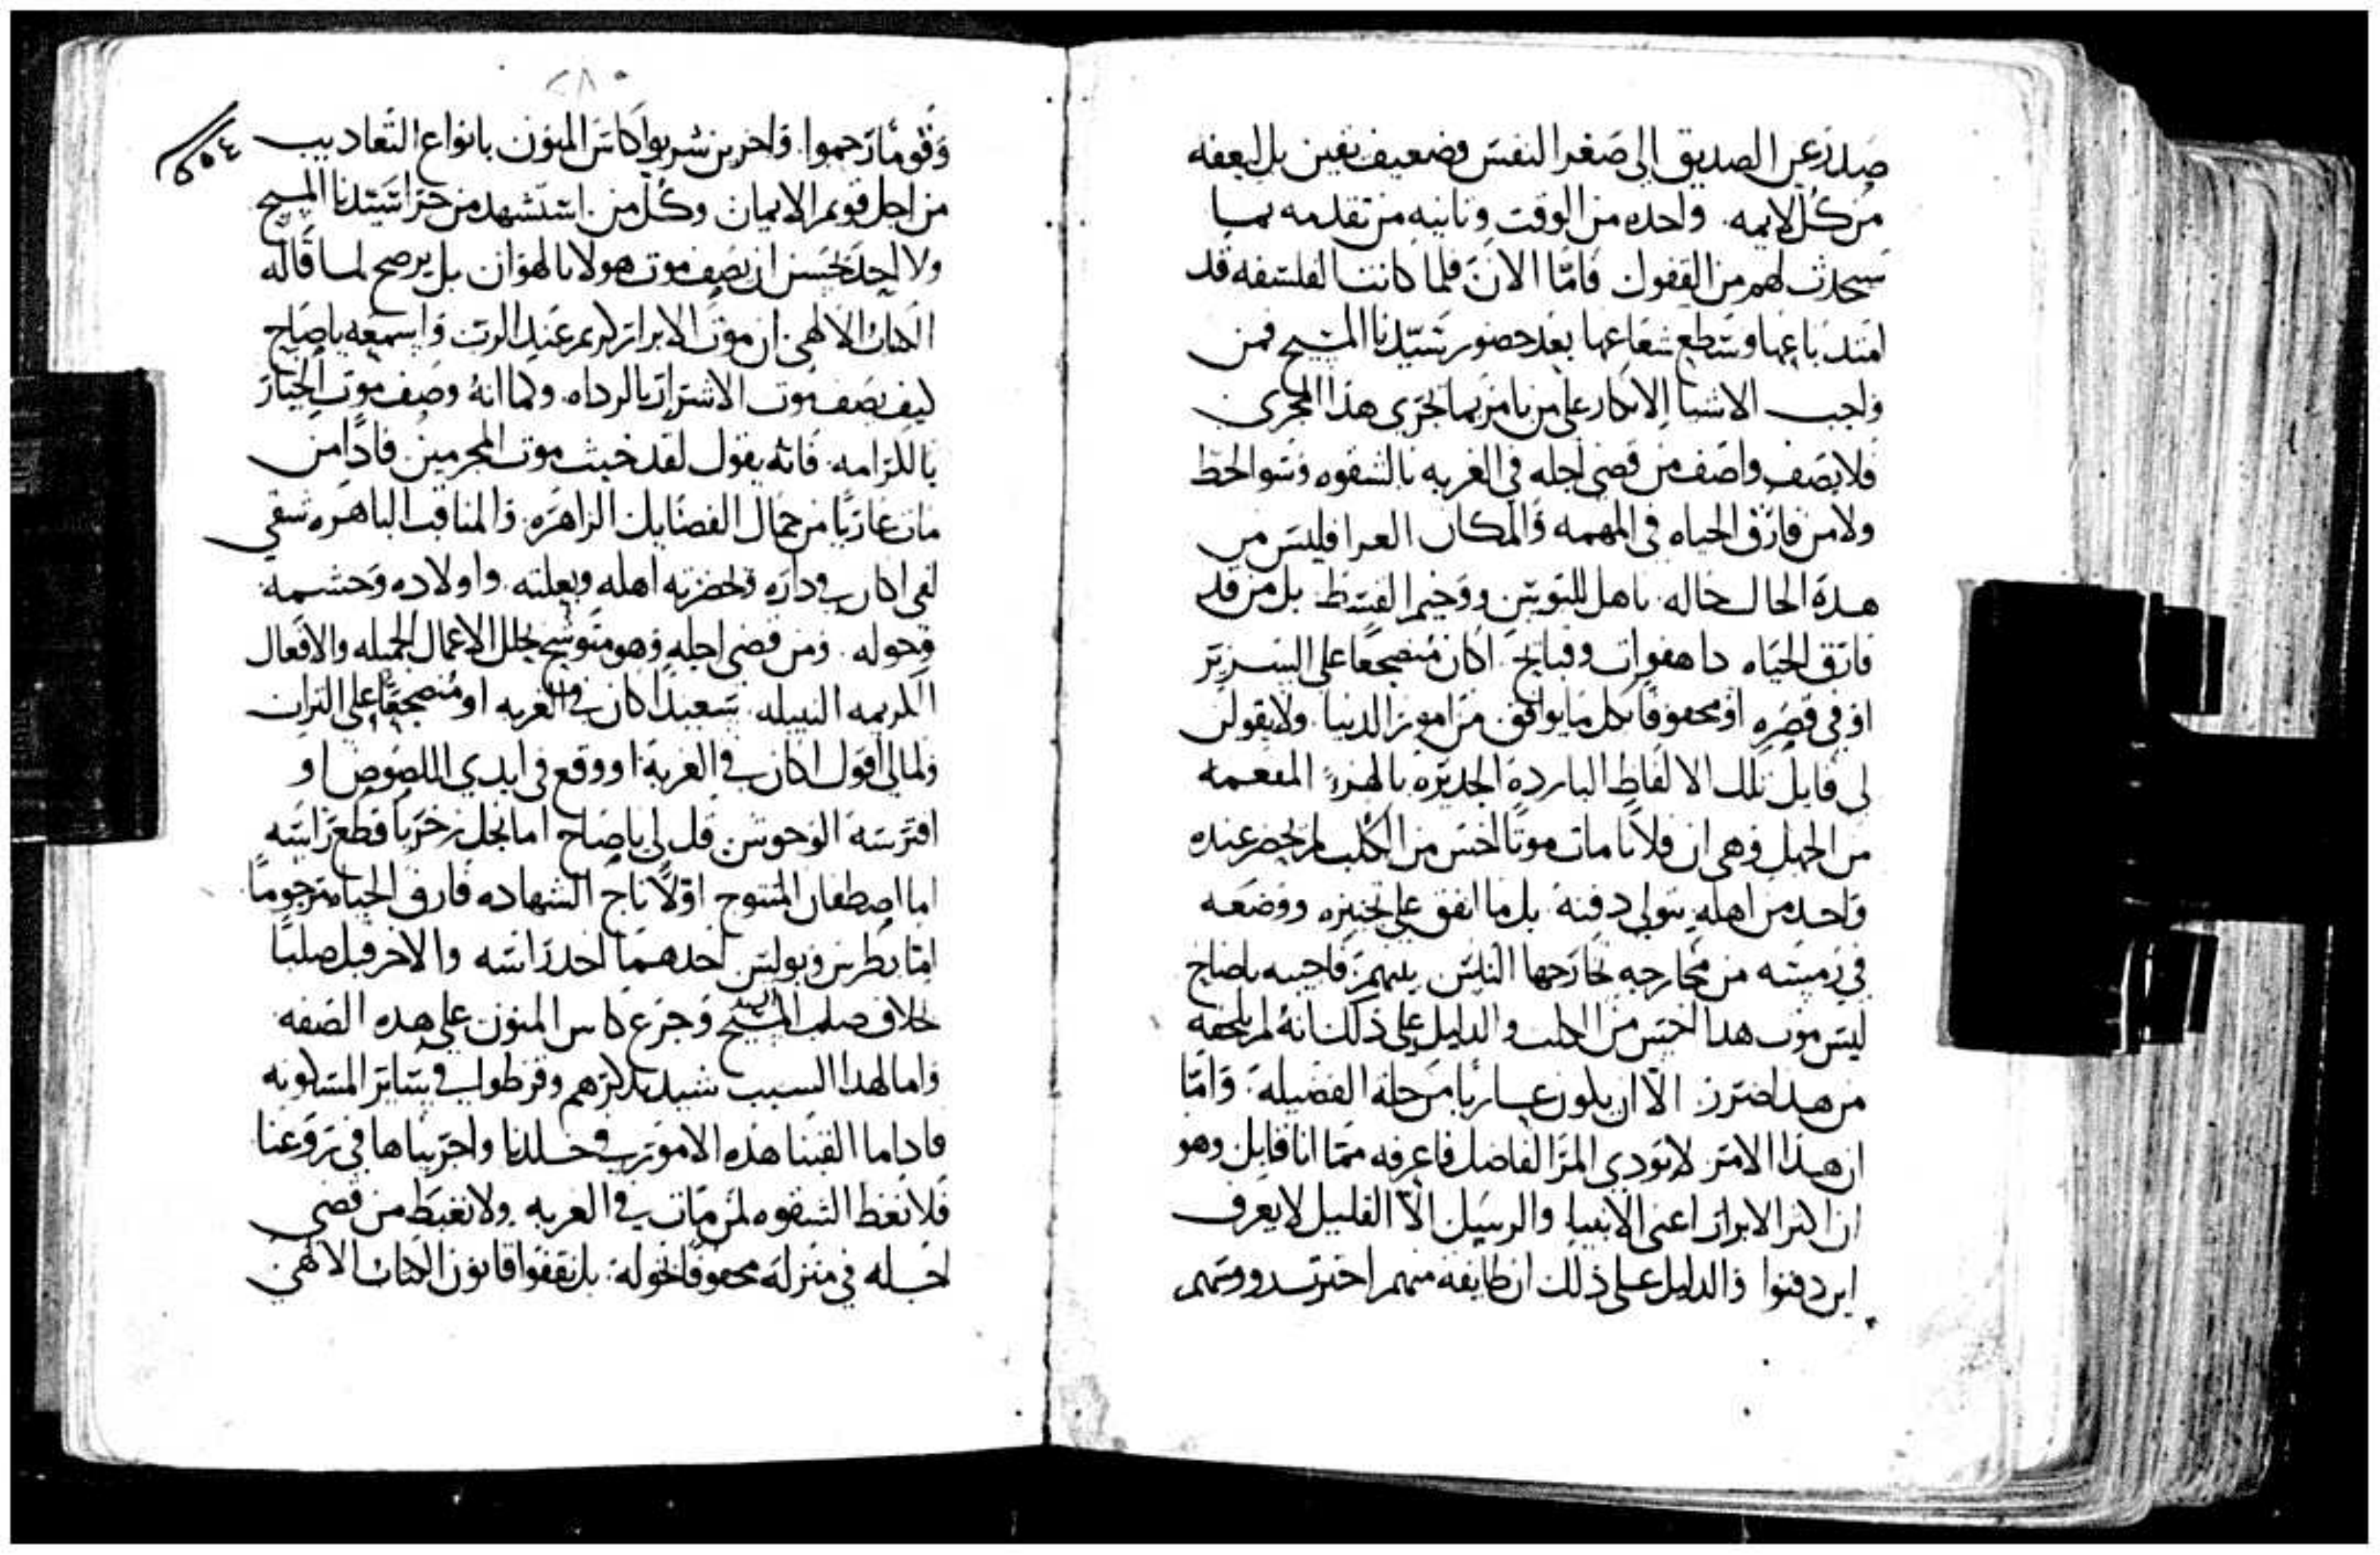 صدر عن الصديق الى صغر النفس وضعيف يقين بل ليعفه
من كل لايمه. واحده من الوقت وثانيه من تقدمه بما
سيحدث لهم من القفول فامّا الان فلما كانت الفلسفه قد
امتد باعها وسطع شعاعها بعد حضور سيّدنا المسيح فمن
واجب الاشيا الانكار على من يامر بما يجري هذا المجرى
فلا يصف واصف من قضى اجله في الغربه بالشقوه وسو الحظ
ولا من فارق الحياه في المهمه والمكان العرا فليس من
هذة الحال حاله. باهل للتوبيس ووخيم القسط بل من قد
فارق الحياه دا هفوات وقبايح. اكان منضجعًا على السرير
او في قصره او محفوفًا بكل ما يوافق. من امور الدنيا. ولا يقولن
لي قايل تلك الالفاظ الباردة الجديره بالهزءِ المفعمه
من الجهل وهي ان فلانا مات موتًا اخس من الكلب لم يحضر عنده
واحد من اهله يتولى دفنه. بل ما اتفق على تجنيزه ووضعه
في رمسه من مخارجه تخارجها الناس بينهم. فاجيبه ياصاح
ليس موت هدا اخس من الكلب والدليل على ذلك انه لم يلحقه
من هدا ضرر الاّ ان يكون عاريا من حلة الفضيله. وامّا
ان هذا الامر لا يودي المرَ الفاضل فاعرفه ممّا انا قايل وهو
ان اكثر الابرار اعني الانبيا والرسل الاّ القليل لا يعرف
اين دفنوا والدليل على ذلك ان طايفه منهم اخترت رووسهم
٢٨٠
٤٥٤
وقومًا رجموا. واخرين شربوا كاس المنون بانواع التعاديب
من اجل قويم الايمان وكل من. استشهد من جرا سيّدنا المسيح
ولا احد يحسن ان يصف موت هولا بالهوان بل يرضخ لما قاله
الكتاب الالهي ان موت الابرار كريم عند الرب واسمعه ياصاح
كيف يصف موت الاشرار بالرداه. وكما انه وصف موت الخيار
بالكرامه. فانه يقول لقد خبث موت المجرمين. فادًا من
مات عاريًا من جمال الفضايل الزاهره. والمناقب الباهره شقي
لفي اكان في داره وتحضرته اهله وبعلته. واولاده وحشمه
وخوله. ومن قضى اجله وهو متوشح بحلل الاعمال الجميله والافعال
الكريمه النبيله. سعيدًا كان في الغربه او منضجعًا على التراب
ولما لي اقول اكان في الغربة او وقع في ايدي اللصوص او
افترسته الوحوش. قل لي ياصاح اما نجل زخريا قطع راسه
اما اصطفان المتتوج اوّلًا تاج الشهاده فارق الحياه مرجومًا
امّا بطرس وبولس احدهما اخد راسه والاخر قبل صلبًا
خلاف صلب السيد المسيح وجرع كاس المنون على هده الصفه
واما لهدا السبب شيد بدكرهم وقرظوا في ساير المسكونه
فاداما القينا هذه الامور في خلدنا واجريناها في روعنا
فلا نعط الشقوه لمن مات في الغربه. ولا نغبط من قضى
اجله في منزله محفوفًا بخوله. بل نقفوا قانون الكتاب الالهي